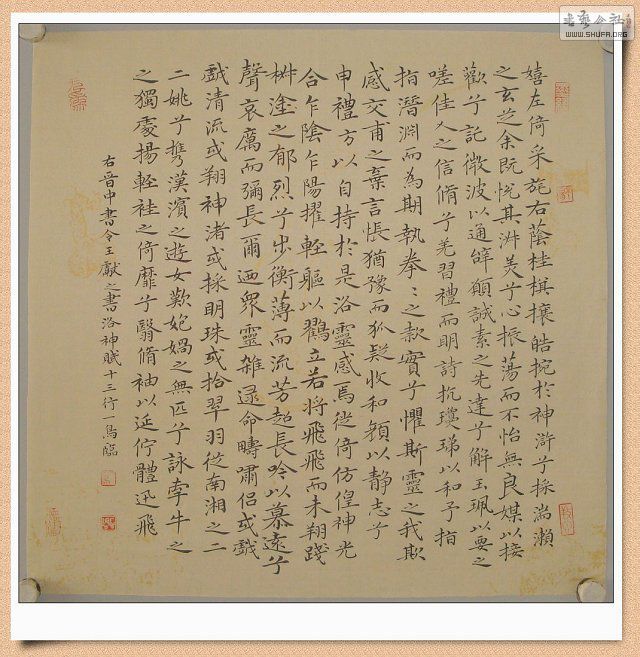 嬉左倚采旄右蔭桂棋攘皓捥於神滸兮採湍瀨
之玄芝余旣悅其淑美兮心振蕩而不怡無良媒以接
歡兮託微波以通辭願誠素之先達兮解玉珮以要之
嗟佳人之信脩兮羌習禮而明詩抗瓊珶以和予指
指潛淵而為期執拳〻之款實兮懼斯靈之我欺
感交甫之棄言悵猶豫而狐疑收和顏以静志兮
申禮方以自持於是洛靈感焉徙倚仿偟神光
合乍陰乍陽擢輕軀以鶴立若將飛飛而未翔踐
椒塗之郁烈兮步衡薄而流芳超長吟以慕遠兮
聲哀厲而彌長爾迺衆靈雜遝命疇嘯侶或戲
戲清流或翔神渚或採明珠或拾翠羽從南湘之二
二姚兮攜漢濱之遊女歎匏媧之無匹兮詠牽牛之
之獨處揚輕袿之倚靡兮翳脩袖以延佇體迅飛
右晉中書令王獻之書洛神賦十三行一馬臨
書藝公社
WWW.SHUFA.ORG